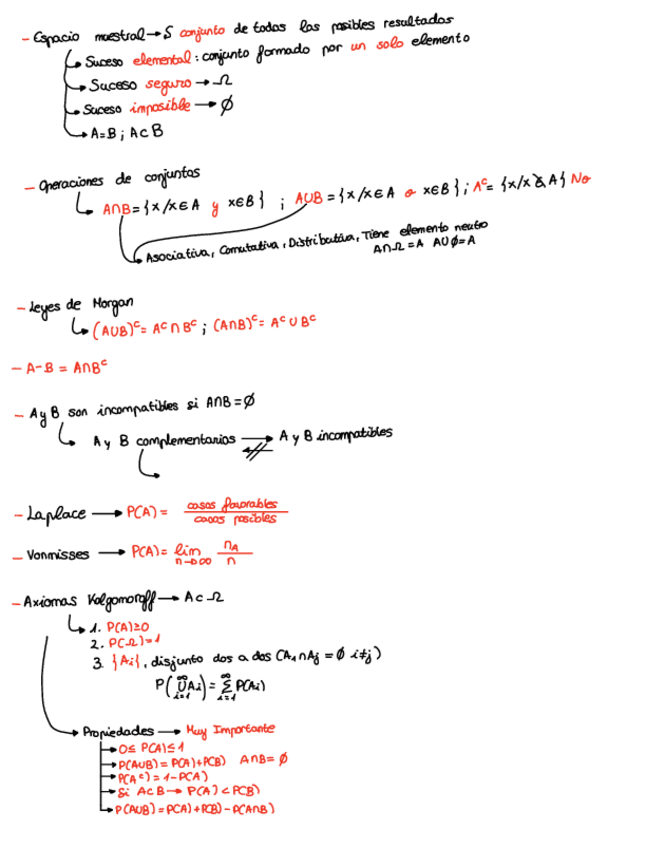 - Espacio muestral → S conjunto de todos los posibles resultados
→ Suceso elemental: conjunto formado por un solo elemento
→ Suceso seguro → Ω
→ Suceso imposible → ∅
→ A=B; A⊂B
- Operaciones de conjuntos
→ A∩B={x/x∈A y x∈B} ; A∪B={x/x∈A o x∈B}; Aᶜ={x/x∉A} No
→ Asociativa, Conmutativa, Distributiva, Tiene elemento neutro
A∩Ω=A A∪∅=A
- Leyes de Morgan
→ (A∪B)ᶜ=Aᶜ∩Bᶜ; (A∩B)ᶜ=Aᶜ∪Bᶜ
- A-B = A∩Bᶜ
- A y B son incompatibles si A∩B=∅
→ A y B complementarios → A y B incompatibles
- Laplace → P(A)= casos favorables / casos posibles
- Vonmisses → P(A)= lim n→∞ nA / n
- Axiomas Kolgomoroff → A⊂Ω
→ 1. P(A)≥0
2. P(Ω)=1
3. {Ai}, disjunto dos a dos (A1∩Aj=∅ i≠j)
P(∞∪i=1 Ai)=∞Σi=1 P(Ai)
→ Propiedades → Muy Importante
→ 0≤ P(A)≤1
→ P(A∪B)=P(A)+P(B) A∩B=∅
→ P(Aᶜ)=1-P(A)
→ Si A⊂B → P(A)<P(B)
→ P(A∪B)=P(A)+P(B)-P(A∩B)